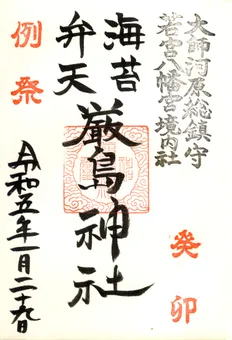 大師河原総鎮守
若宮八幡宮境内社
癸卯
海苔
弁天
厳島神社
例祭
令和五年一月二十九日